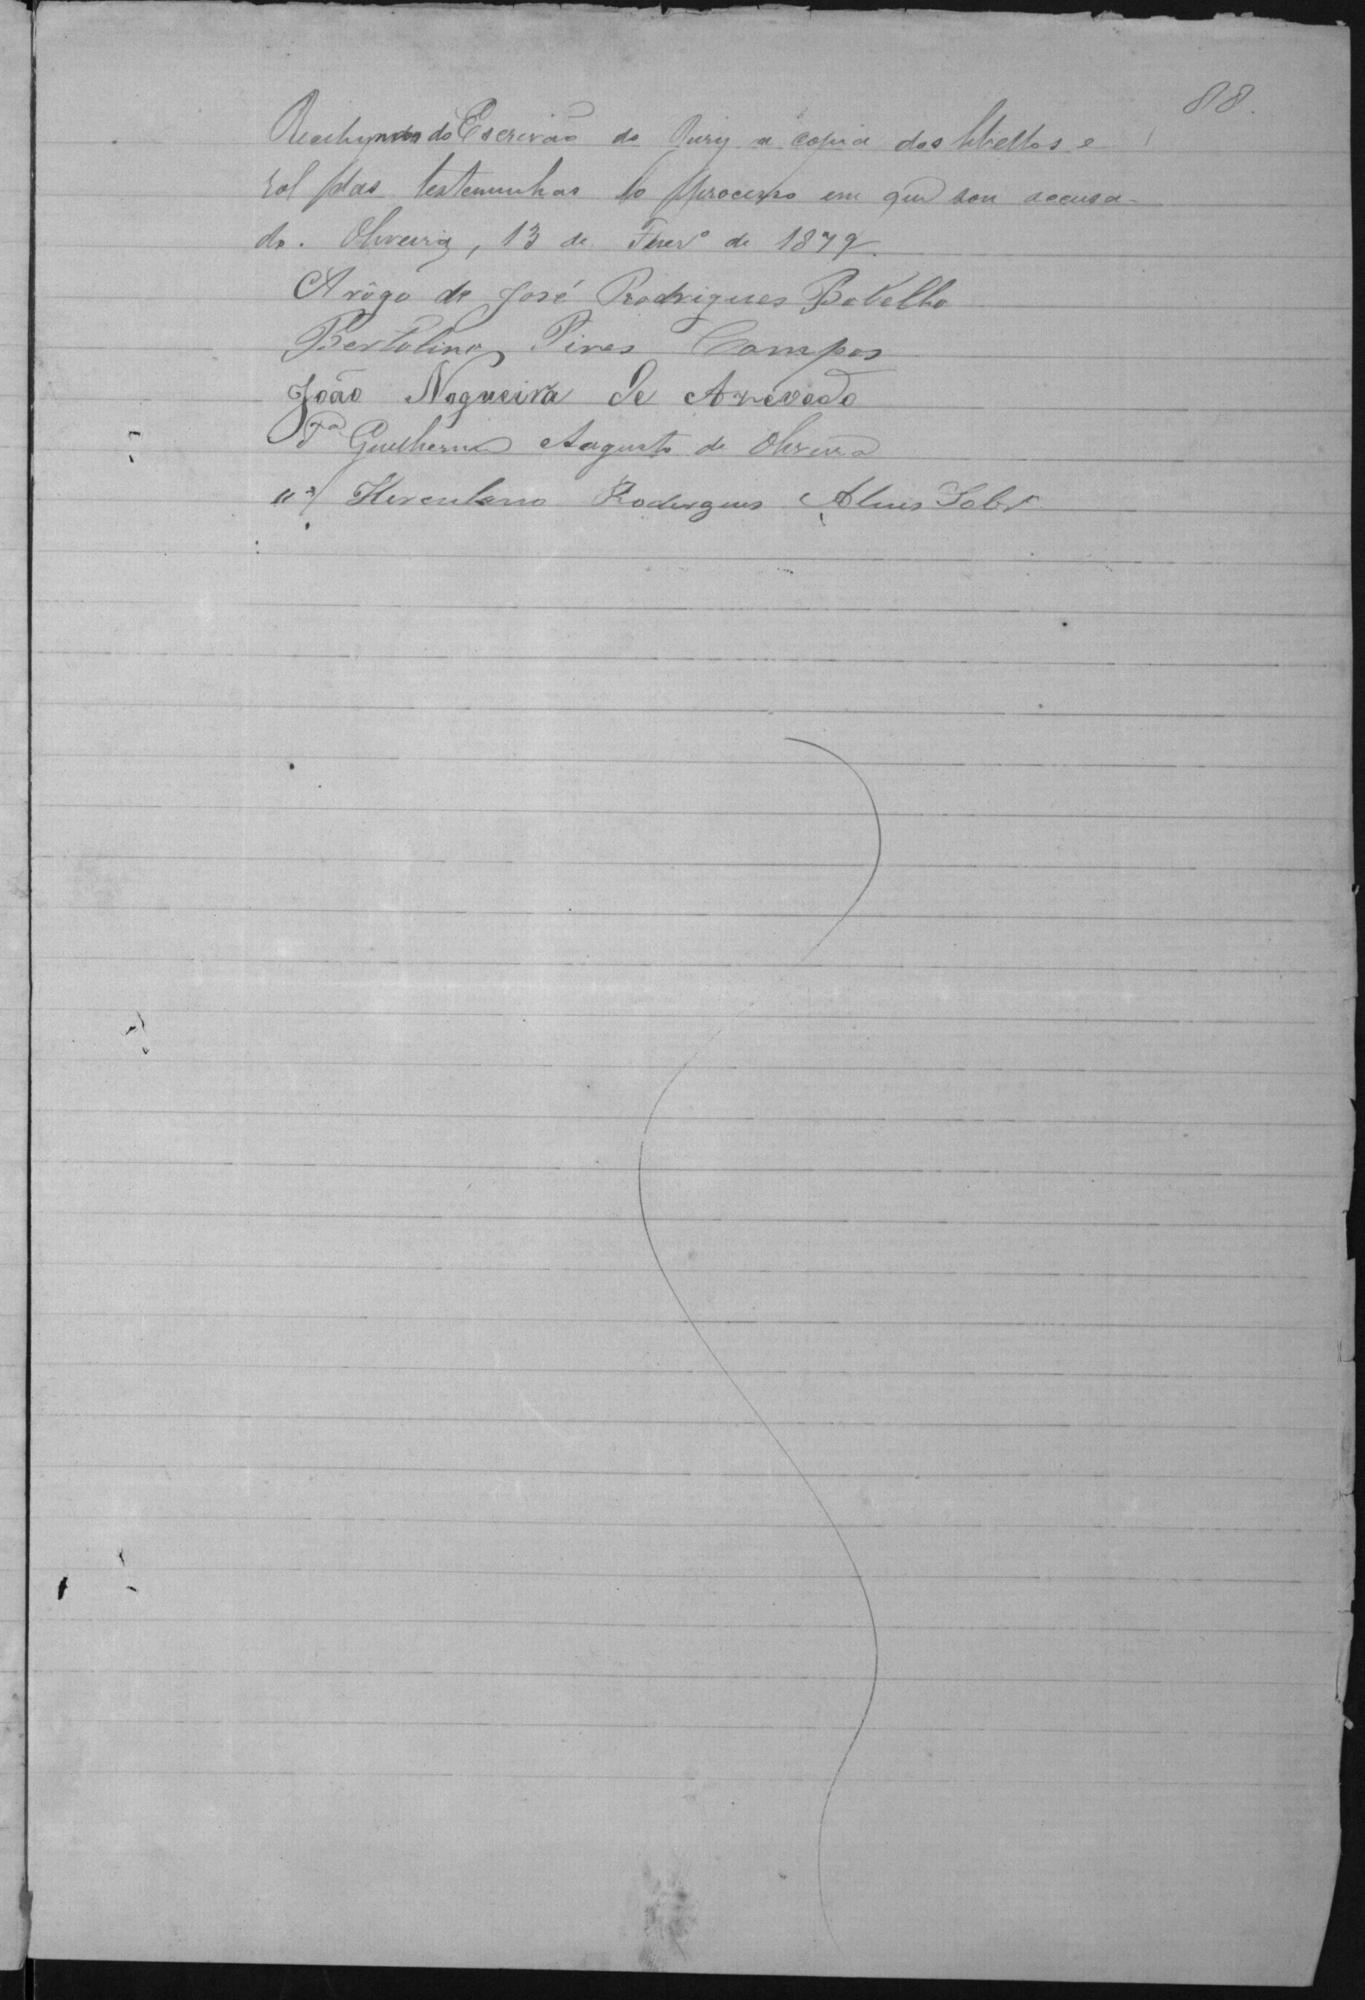 88.
do Escrivão do Jury a copia dos libellos e
rol das testemunhas do processo em que sou accusa-
do. Oliveira, 13 de Fever.º de 1879.
A rôgo de José Rodrigues Botelho
Bertolino Pires Campos
João Nogueira de Azevedo
Tª Guilherme Augusto de Oliveira
" Herculano Rodrigues Alves